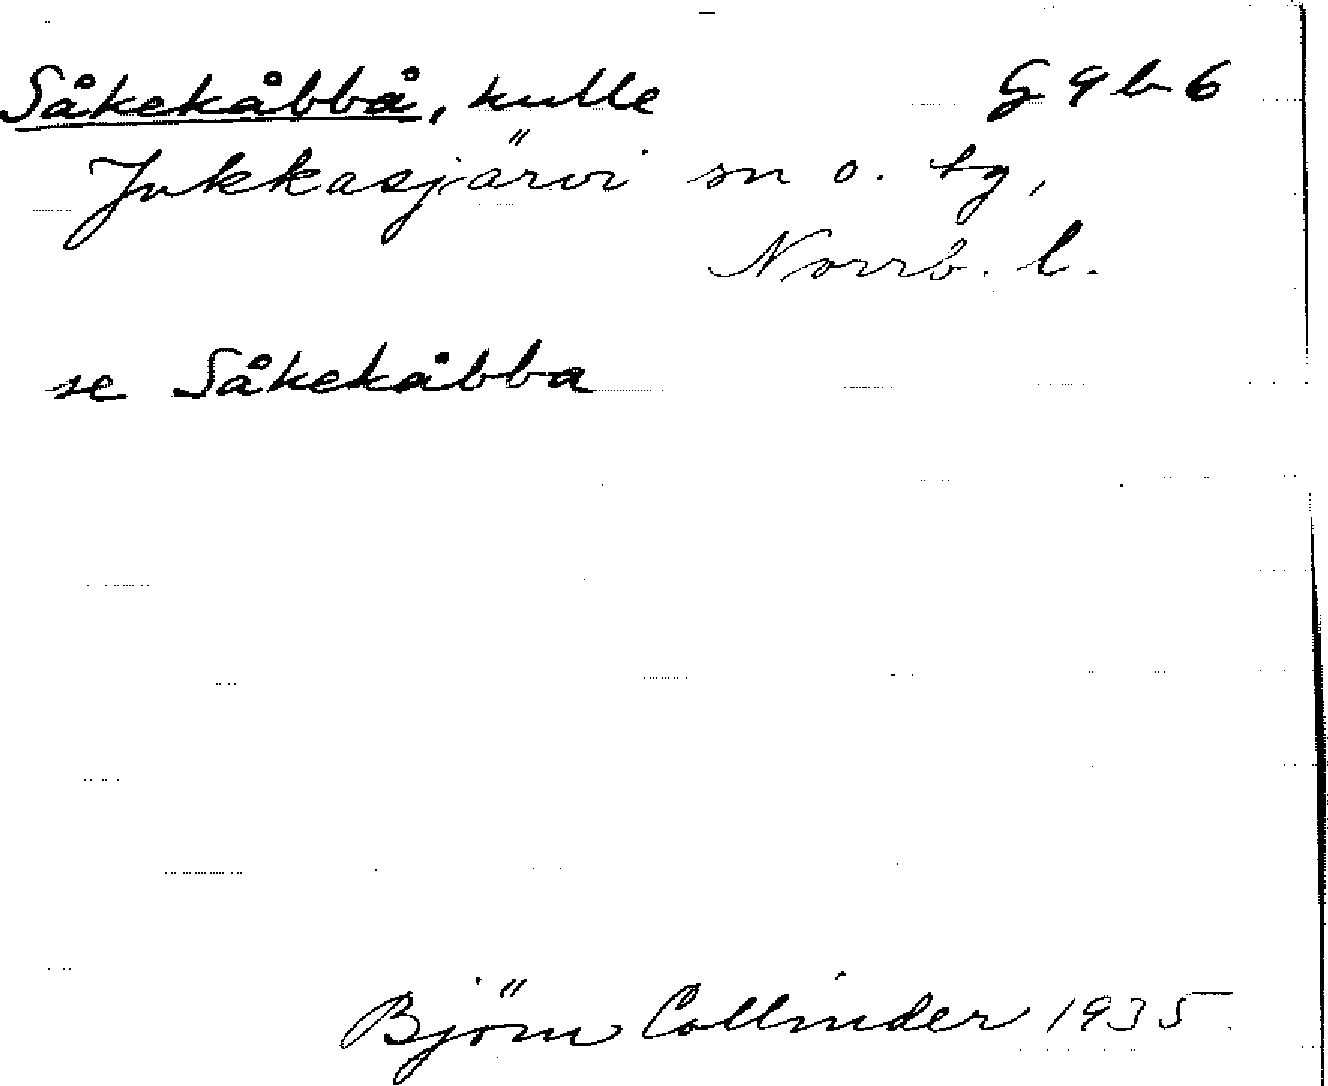 Såkekåbbå, kulle G 9 b 6
Jukkasjärvi sn o. tg,
Norrb. l.
se Såkekåbba
Björn Collinder 1935